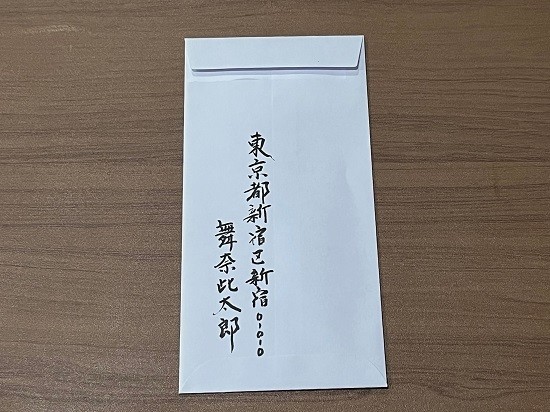 東京都新宿区新宿0-0-0
舞奈比太郎